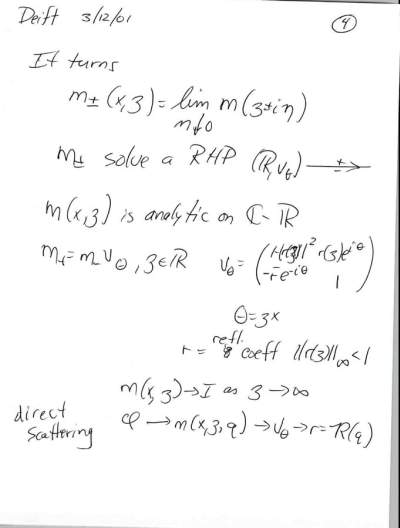 Deift 3/12/01 ④
It turns
m± (x,z) = lim m(z±iη)
η↓0
m± solve a RHP (ℝ, v_θ) ±→
m(x,z) is analytic on ℂ-ℝ
m₊ = m₋ v_θ, z∈ℝ v_θ = (1-|r(z)|² r(z)e^{iθ}
-r̄e^{-iθ} 1)
θ = zx
refl.
r = coeff ||r(z)||_∞ < 1
m(x,z) → I as z → ∞
direct
scattering φ → m(x,z,q) → v_θ → r = R(q)